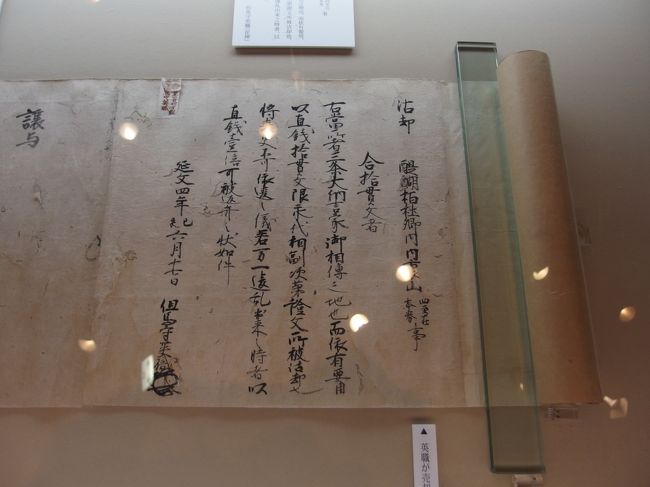 沽却 醍醐柏杜郷内山 四至在本券 事
合拾貫文者
右當山者三条大納言家御相傳之地也而依有要用
以直銭拾貫文限永代相副次第證文所被沽却也
将来更不可依違之儀若万一違乱出来之時者以
直銭壹倍可被返弁之状如件
延文四年己亥六月十七日 但馬守英職
譲与
▲英職が売却